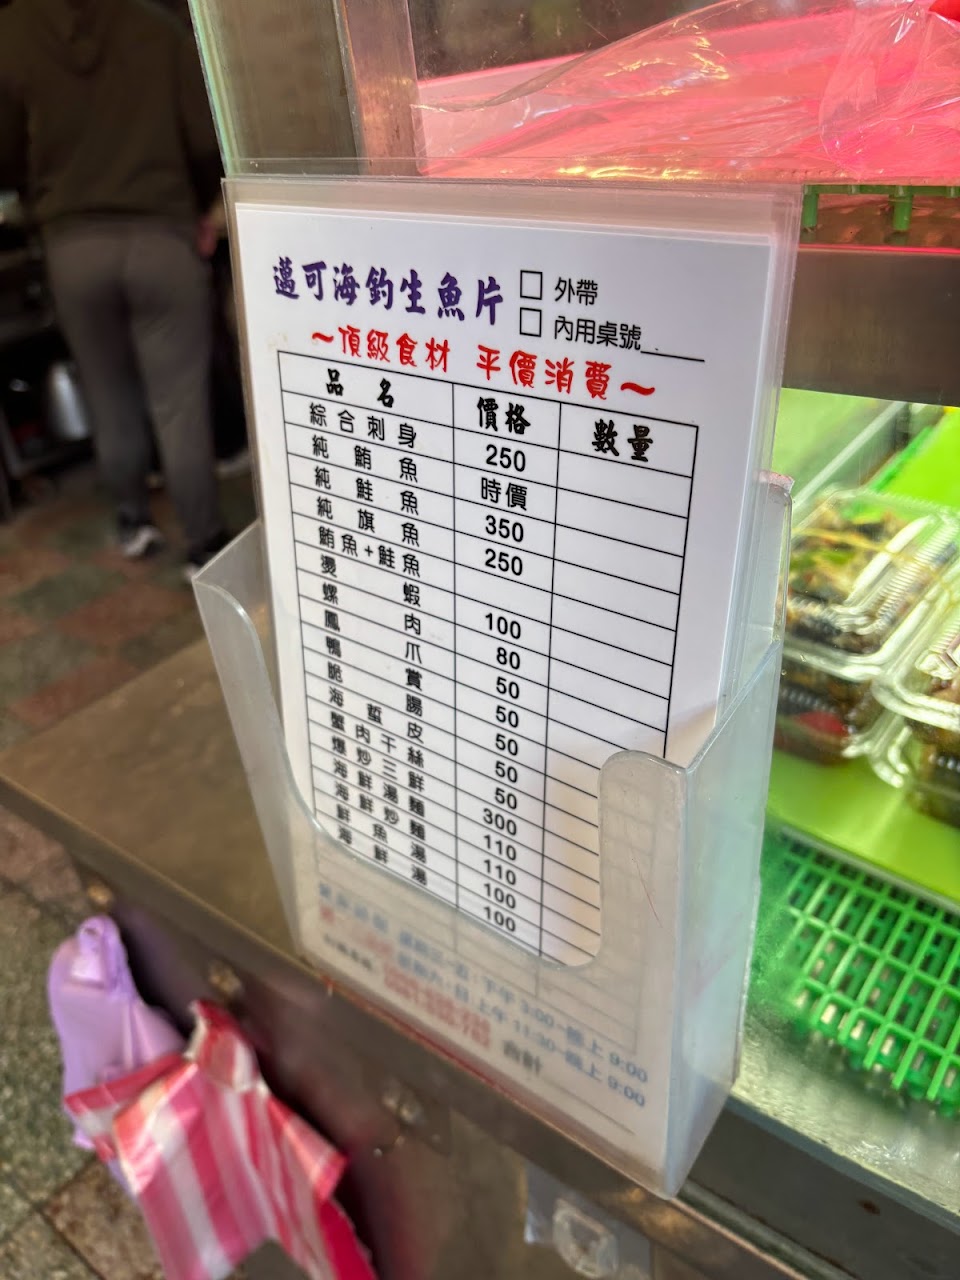 邁可海釣生魚片
□ 外帶
□ 內用桌號____
~頂級食材 平價消費~
品名 價格 數量
綜合刺身 250
純鮪魚 時價
純鮭魚 350
純旗魚 250
鮪魚+鮭魚
燙蝦 100
螺肉 80
鳳爪 50
鴨賞 50
脆腸 50
海蜇皮 50
蟹肉干絲 50
爆炒三鮮 300
海鮮湯麵 110
海鮮炒麵 110
鮮魚湯 100
海鮮湯 100
下午 3:00~晚上 9:00
日 上午 11:30~晚上 9:00
合計